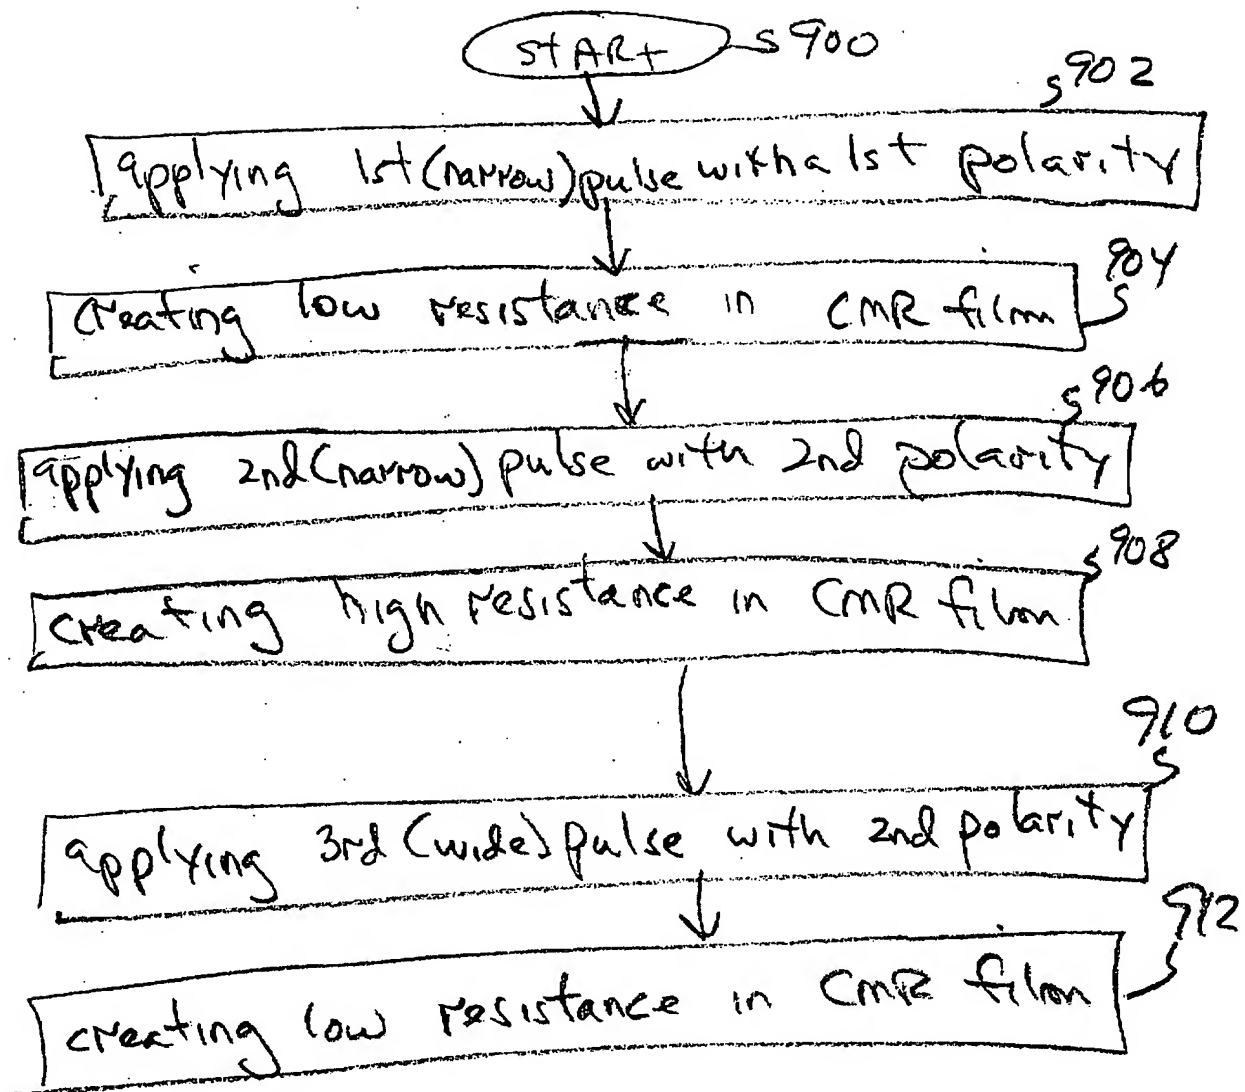 StARt 900
902
applying 1st (narrow) pulse with a 1st polarity
904
creating low resistance in CMR film
906
applying 2nd (narrow) pulse with 2nd polarity
908
creating high resistance in CMR film
910
applying 3rd (wide) pulse with 2nd polarity
912
creating low resistance in CMR film